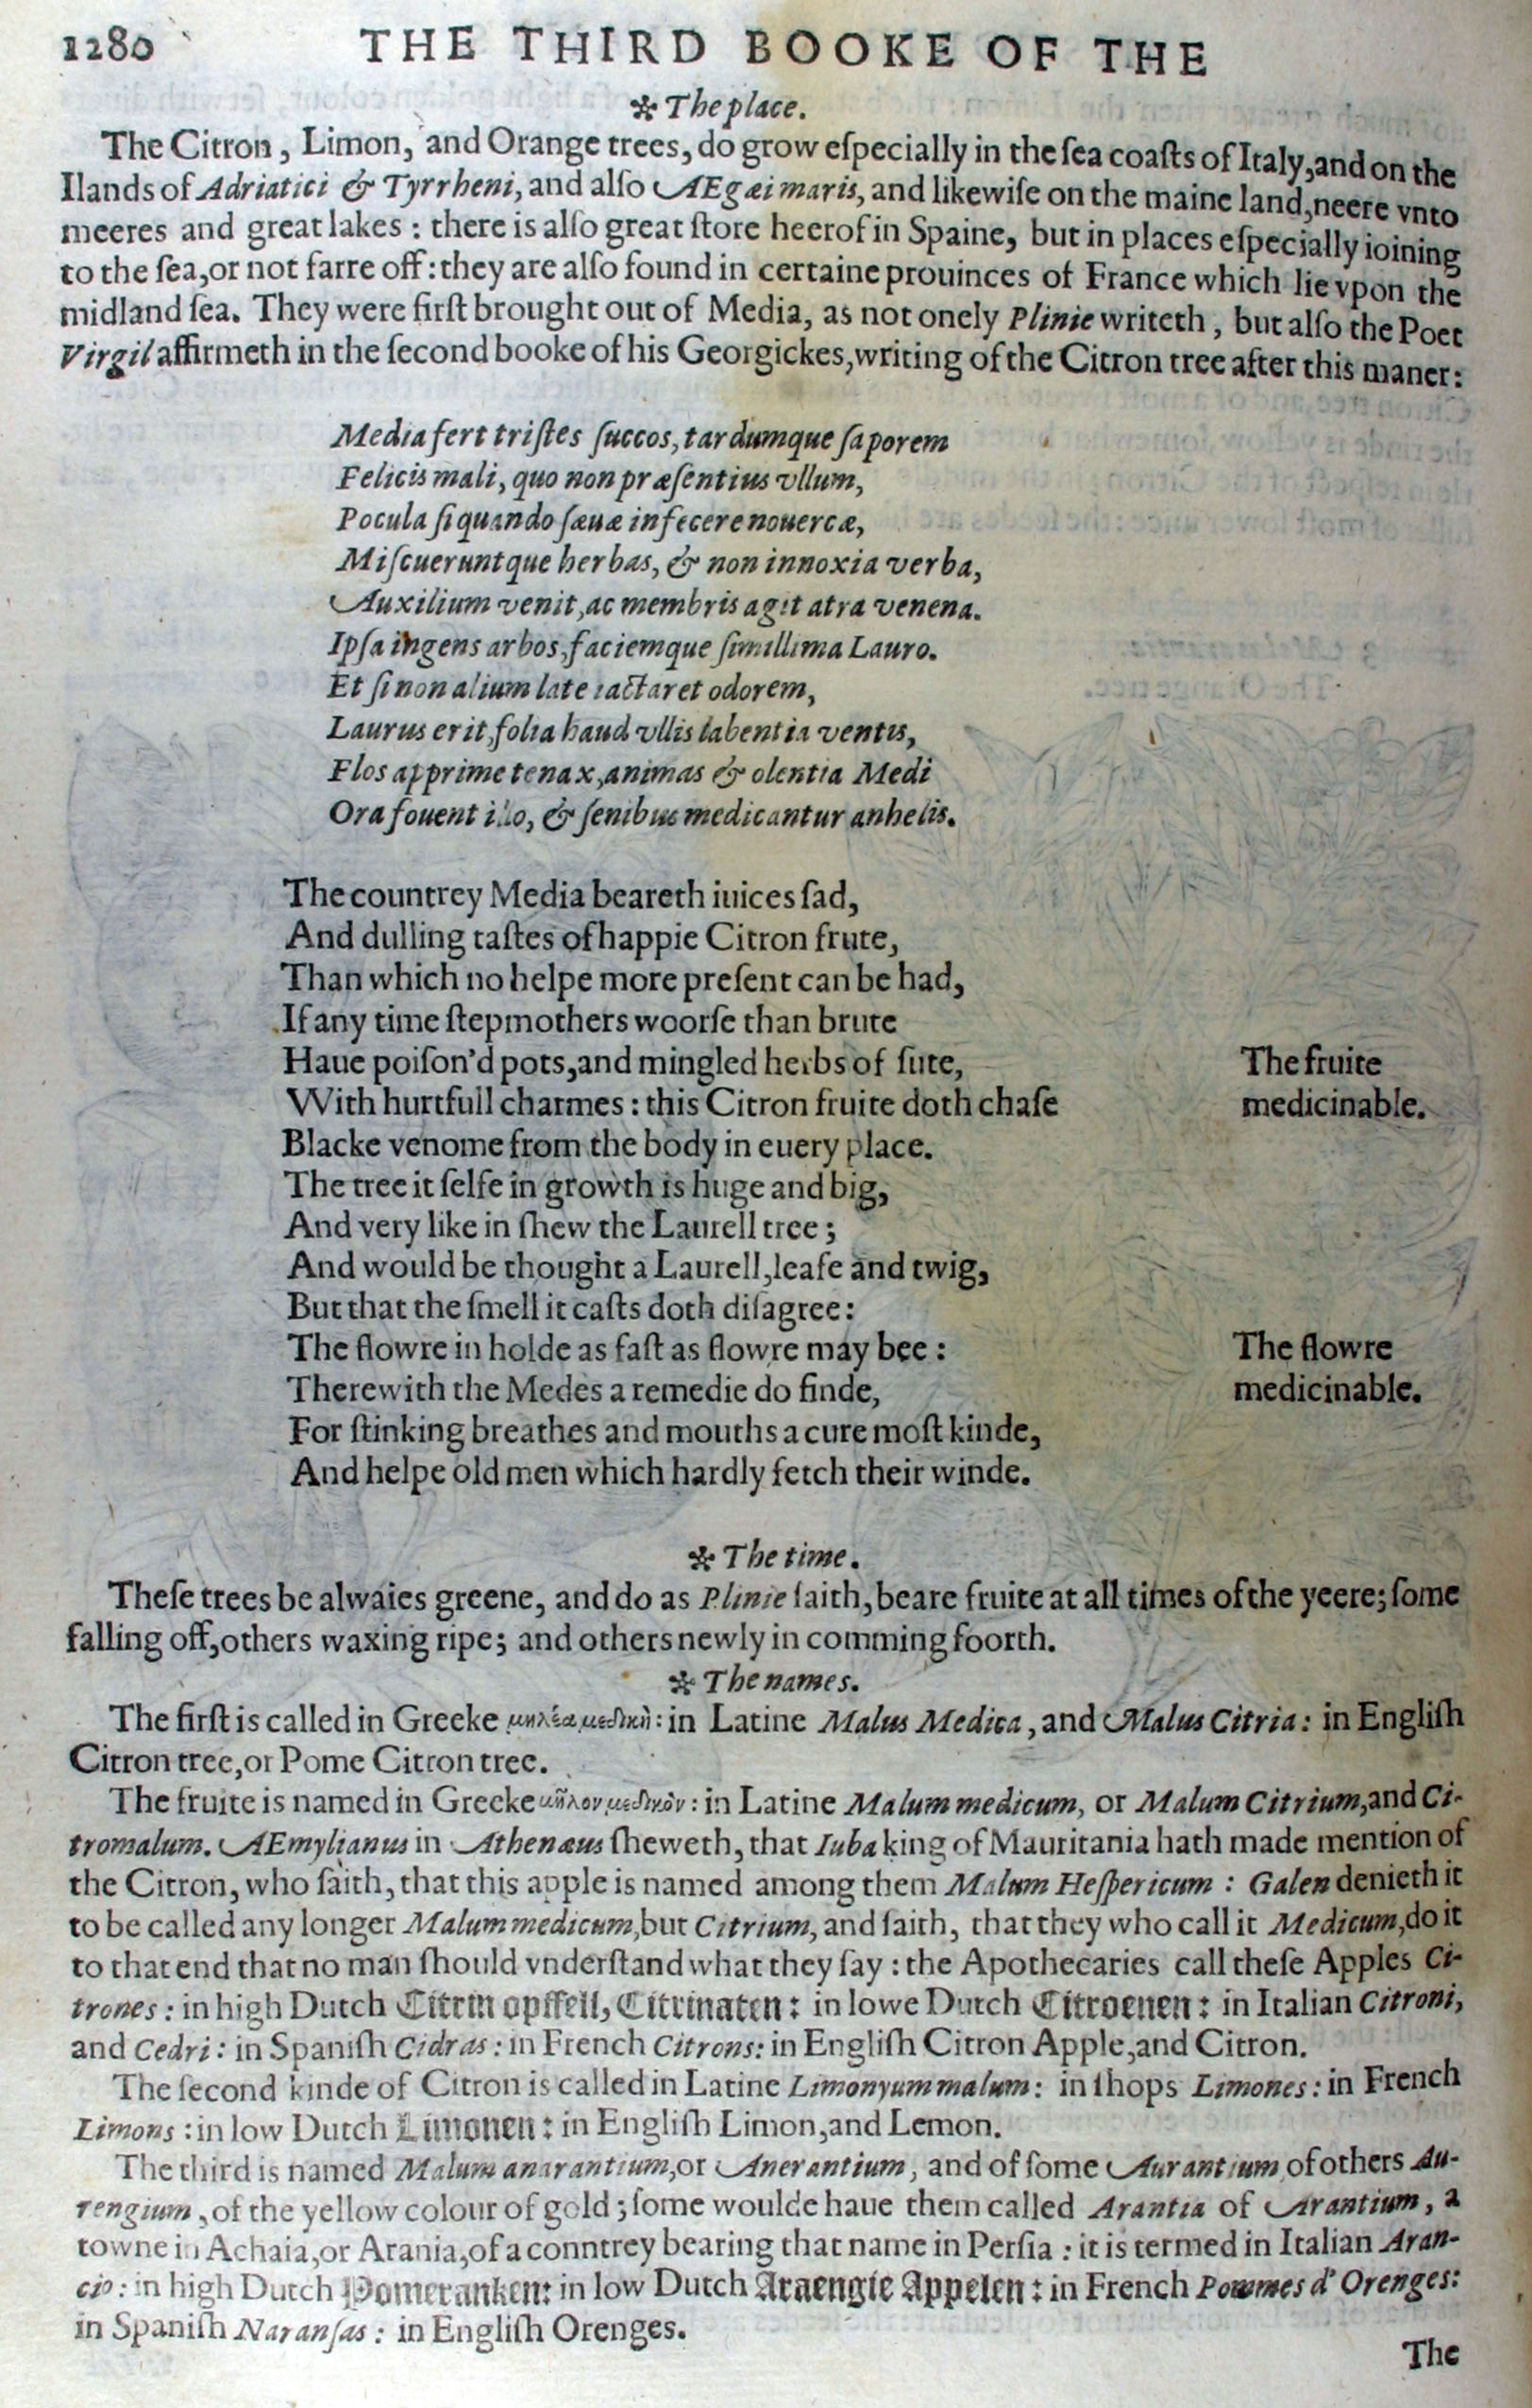 1280 THE THIRD BOOKE OF THE
✲ The place.
The Citron, Limon, and Orange trees, do grow eſpecially in the ſea coaſts of Italy, and on the
Ilands of Adriatici & Tyrrheni, and alſo AEgæi maris, and likewiſe on the maine land, neere vnto
meeres and great lakes: there is alſo great ſtore heerof in Spaine, but in places eſpecially ioining
to the ſea, or not farre off: they are alſo found in certaine prouinces of France which lie vpon the
midland ſea. They were firſt brought out of Media, as not onely Plinie writeth, but alſo the Poet
Virgil affirmeth in the ſecond booke of his Georgickes, writing of the Citron tree after this maner:
Media fert triſtes ſuccos, tardumque ſaporem
Felicis mali, quo non præſentius vllum,
Pocula ſi quando ſæuæ infecere nouercæ,
Miſcueruntque herbas, & non innoxia verba,
Auxilium venit, ac membris agit atra venena.
Ipſa ingens arbos, faciemque ſimillima Lauro.
Et ſi non alium late iactaret odorem,
Laurus erit, folia haud vllis labentia ventis,
Flos apprime tenax, animas & olentia Medi
Ora fouent illo, & ſenibus medicantur anhelis.
The countrey Media beareth iuices ſad,
And dulling taſtes of happie Citron frute,
Than which no helpe more preſent can be had,
If any time ſtepmothers woorſe than brute
Haue poiſon'd pots, and mingled herbs of ſute,
The fruite
With hurtfull charmes: this Citron fruite doth chaſe
medicinable.
Blacke venome from the body in euery place.
The tree it ſelfe in growth is huge and big,
And very like in ſhew the Laurell tree;
And would be thought a Laurell, leafe and twig,
But that the ſmell it caſts doth diſagree:
The flowre in holde as faſt as flowre may bee:
The flowre
Therewith the Medes a remedie do finde,
medicinable.
For ſtinking breathes and mouths a cure moſt kinde,
And helpe old men which hardly fetch their winde.
✲ The time.
Theſe trees be alwaies greene, and do as Plinie ſaith, beare fruite at all times of the yeere; ſome
falling off, others waxing ripe; and others newly in comming foorth.
✲ The names.
The firſt is called in Greeke μηλέα μεδικὴ: in Latine Malus Medica, and Malus Citria: in Engliſh
Citron tree, or Pome Citron tree.
The fruite is named in Greeke μῆλον μεδικὸν: in Latine Malum medicum, or Malum Citrium, and Ci-
tromalum. AEmylianus in Athenæus ſheweth, that Iuba king of Mauritania hath made mention of
the Citron, who ſaith, that this apple is named among them Malum Heſpericum: Galen denieth it
to be called any longer Malum medicum, but Citrium, and ſaith, that they who call it Medicum, do it
to that end that no man ſhould vnderſtand what they ſay: the Apothecaries call theſe Apples Ci-
trones: in high Dutch Citrin opffell, Citrinaten: in lowe Dutch Citroenen: in Italian Citroni,
and Cedri: in Spaniſh Cidras: in French Citrons: in Engliſh Citron Apple, and Citron.
The ſecond kinde of Citron is called in Latine Limonyum malum: in ſhops Limones: in French
Limons: in low Dutch Limonen: in Engliſh Limon, and Lemon.
The third is named Malum anarantium, or Anerantium, and of ſome Aurantium, of others Au-
rengium, of the yellow colour of gold; ſome woulde haue them called Arantia of Arantium, a
towne in Achaia, or Arania, of a conntrey bearing that name in Perſia: it is termed in Italian Aran-
cio: in high Dutch Pomeranken: in low Dutch Araengie Appelen: in French Pommes d'Orenges:
in Spaniſh Naranſas: in Engliſh Orenges.
The